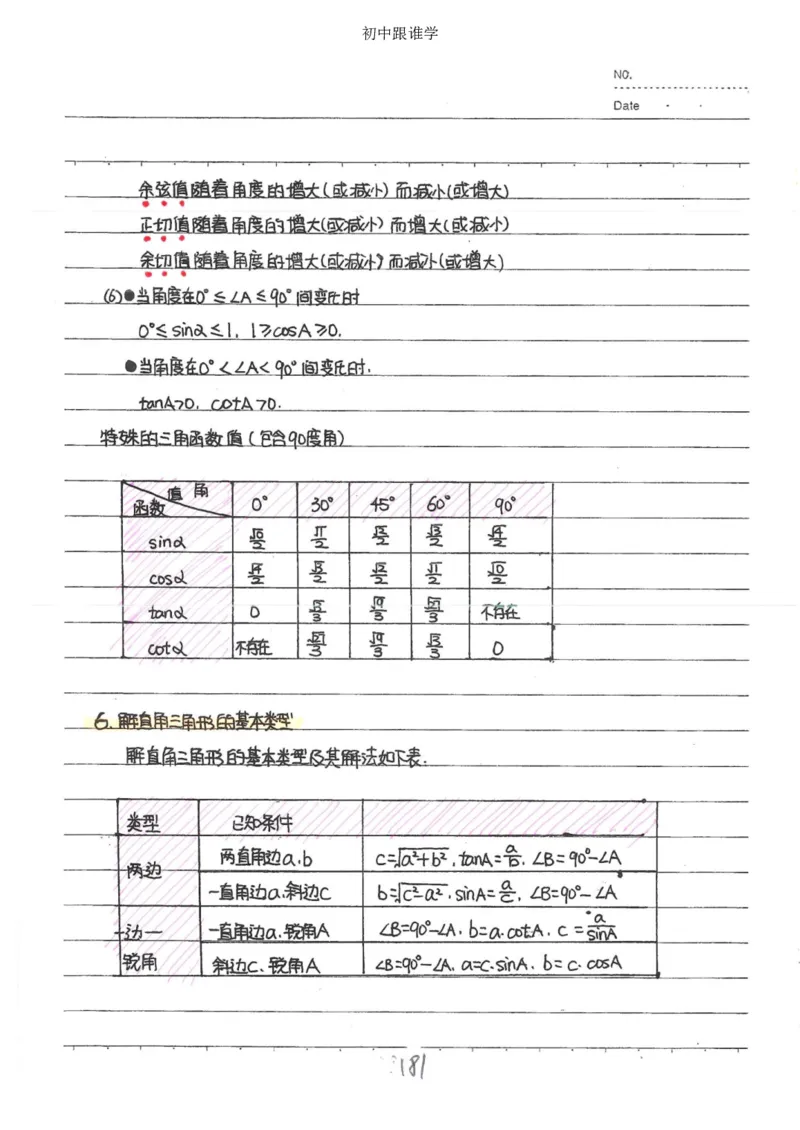 初中跟谁学
NO.
Date
余弦值随着角度的增大(或减小)而减小(或增大)
正切值随着角度的增大(或减小)而增大(或减小)
余切值随着角度的增大(或减小)而减小(或增大)
(6)●当角度在0°≤∠A≤90°间变化时
0°≤sinα≤1, 1≥cosA≥0.
●当角度在0°<∠A<90°间变化时.
tanA>0, cotA>0.
特殊的三角函数值(包含90度角)
函数 值 角 0° 30° 45° 60° 90°
sinα √0/2 √1/2 √2/2 √3/2 √4/2
cosα √4/2 √3/2 √2/2 √1/2 √0/2
tanα 0 √3/3 √9/3 √27/3 不存在
cotα 不存在 √27/3 √9/3 √3/3 0
6.解直角三角形的基本类型
解直角三角形的基本类型及其解法如下表.
类型 已知条件
两边 两直角边a,b c=√a²+b², tanA=a/b, ∠B=90°-∠A
一直角边a,斜边c b=√c²-a², sinA=a/c, ∠B=90°-∠A
一边一 一直角边a,锐角A ∠B=90°-∠A, b=a·cotA, c=a/sinA
锐角 斜边c,锐角A ∠B=90°-∠A, a=c·sinA, b=c·cosA
181